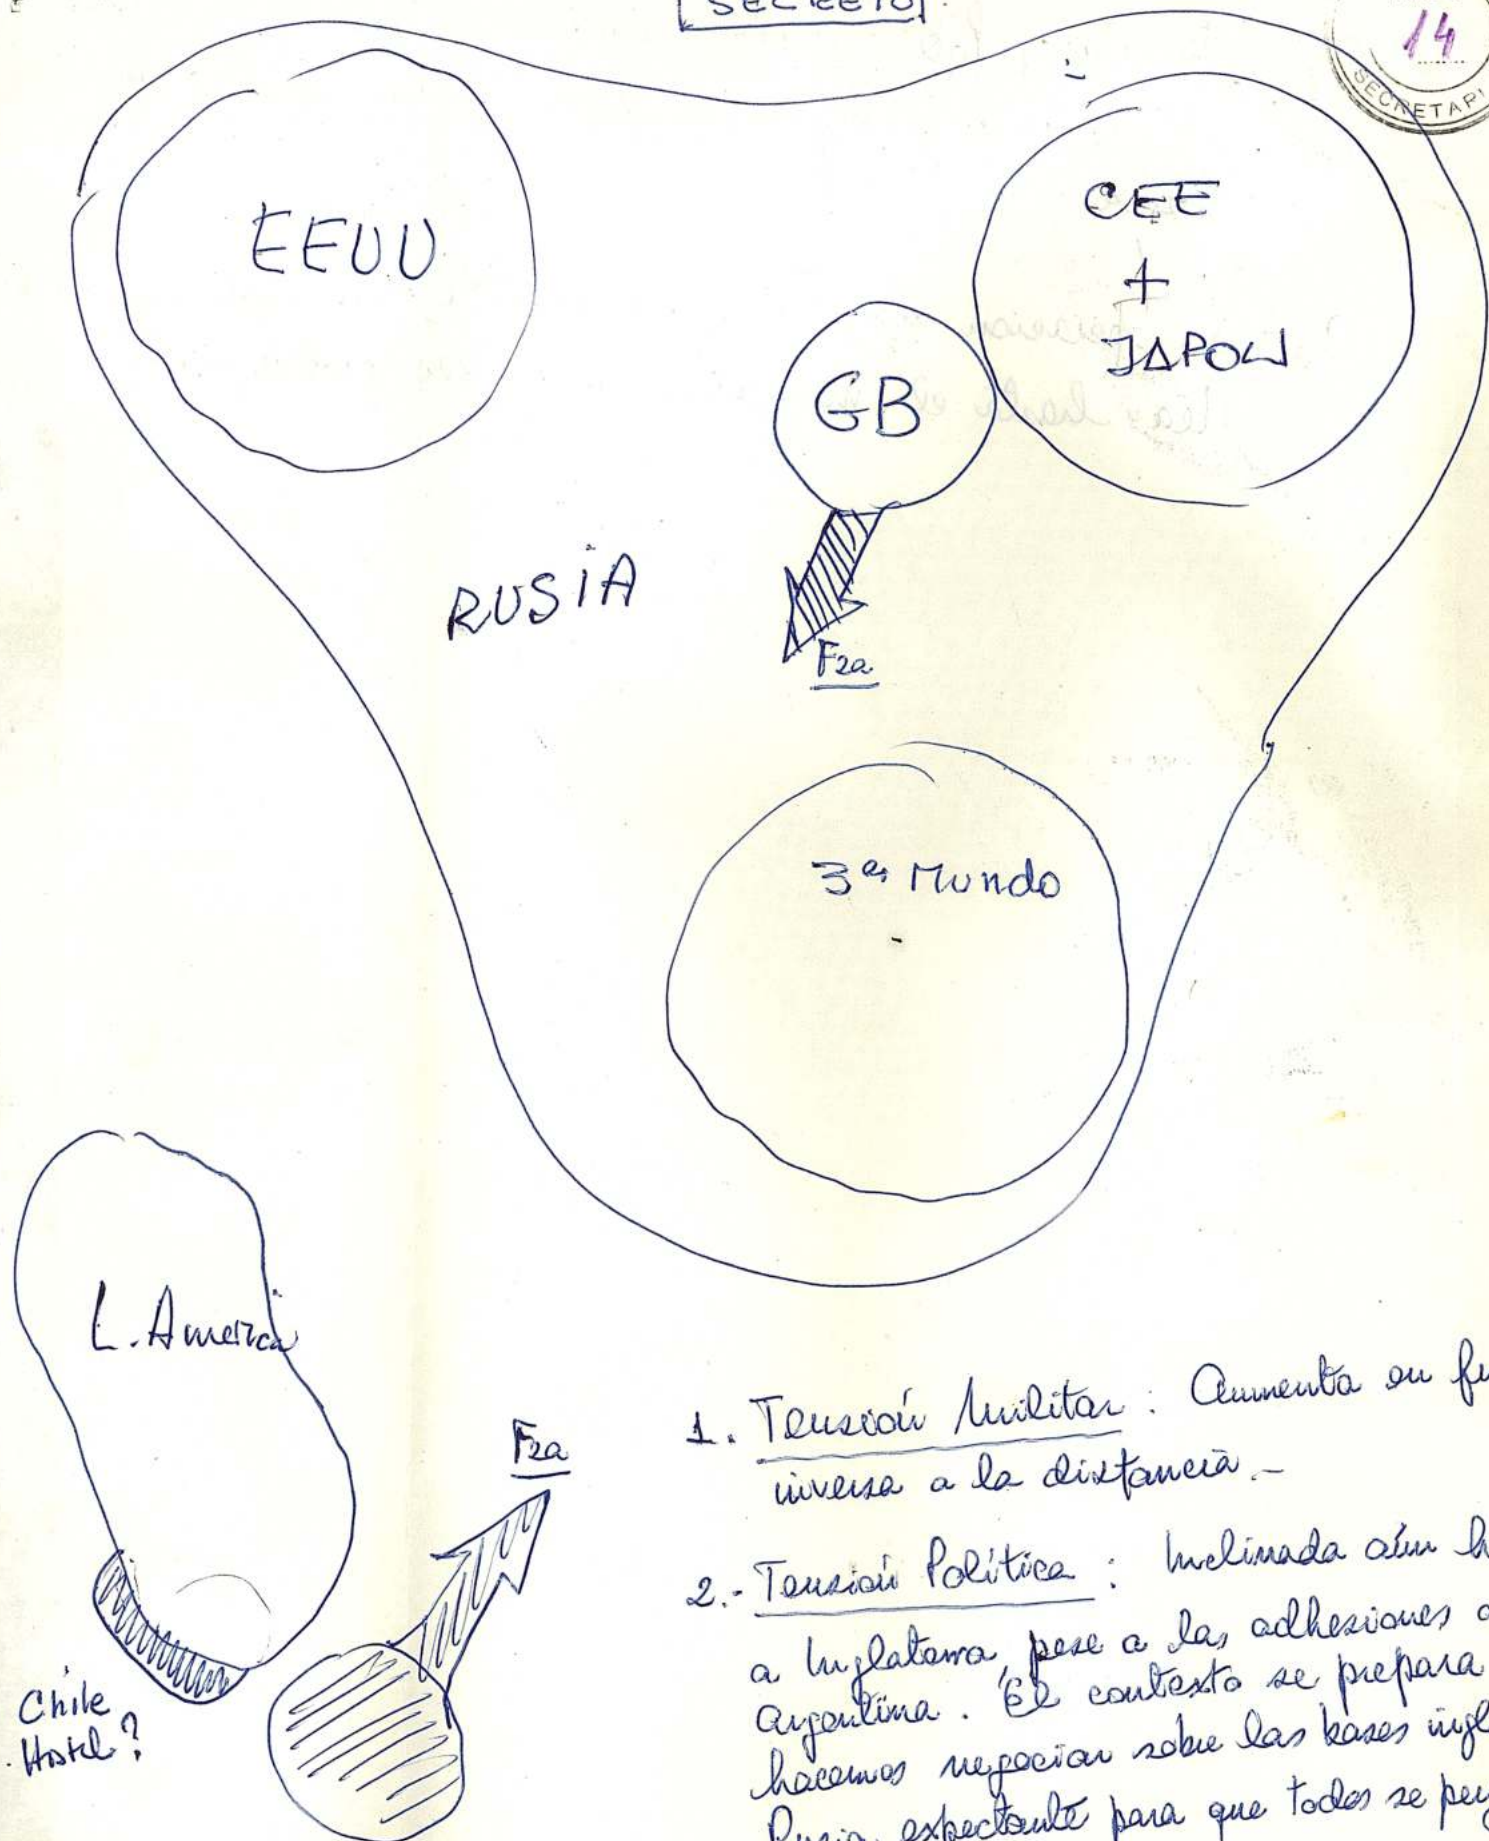 SECRETO
14
SECRETARI
EEUU
CEE
+
JAPON
GB
RUSIA
Fza
3er Mundo
L. America
Fza
Chile
Hostil?
1. Tensión Militar: Aumenta en fu
inversa a la distancia.-
2.- Tensión Política: Inclinada aún h
a Inglaterra, pese a las adhesiones a
Argentina. El contexto se prepara
hacernos negociar sobre las bases ingl
Rusia expectante para que todos se pe